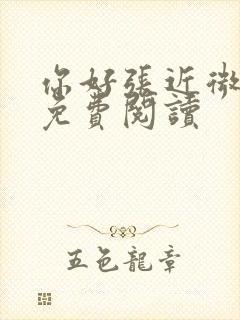 你好張近微
免費閱讀
五色龍章